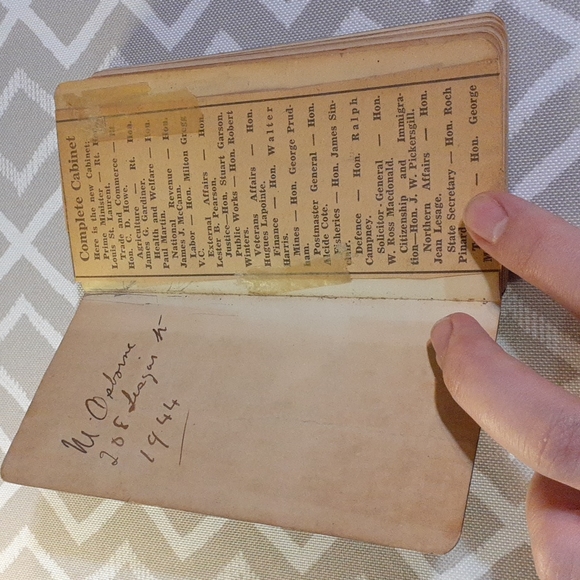 Complete Cabinet
Here is the new Cabinet:
Prime Minister — Rt.
Louis St. Laurent.
Trade and Commerce —
Hon. C. D. Howe.
Agriculture — Rt. Hon.
James G. Gardiner.
Health and Welfare — Hon.
Paul Martin.
National Revenue — Hon.
James J. McCann.
Labor — Hon. Milton Gregg
V.C.
External Affairs — Hon.
Lester B. Pearson.
Justice — Hon. Stuart Garson.
Public Works — Hon. Robert
Winters.
Veterans Affairs — Hon.
Hugues Lapointe.
Finance — Hon. Walter
Harris.
Mines — Hon. George Prud-
ham.
Postmaster General — Hon.
Alcide Cote.
Fisheries — Hon. James Sin-
clair.
Defence — Hon. Ralph
Campney.
Solicitor-General — Hon.
W. Ross Macdonald.
Citizenship and Immigra-
tion—Hon. J. W. Pickersgill.
Northern Affairs — Hon.
Jean Lesage.
State Secretary — Hon. Roch
Pinard
— Hon. George
M. Osborne
208
1944